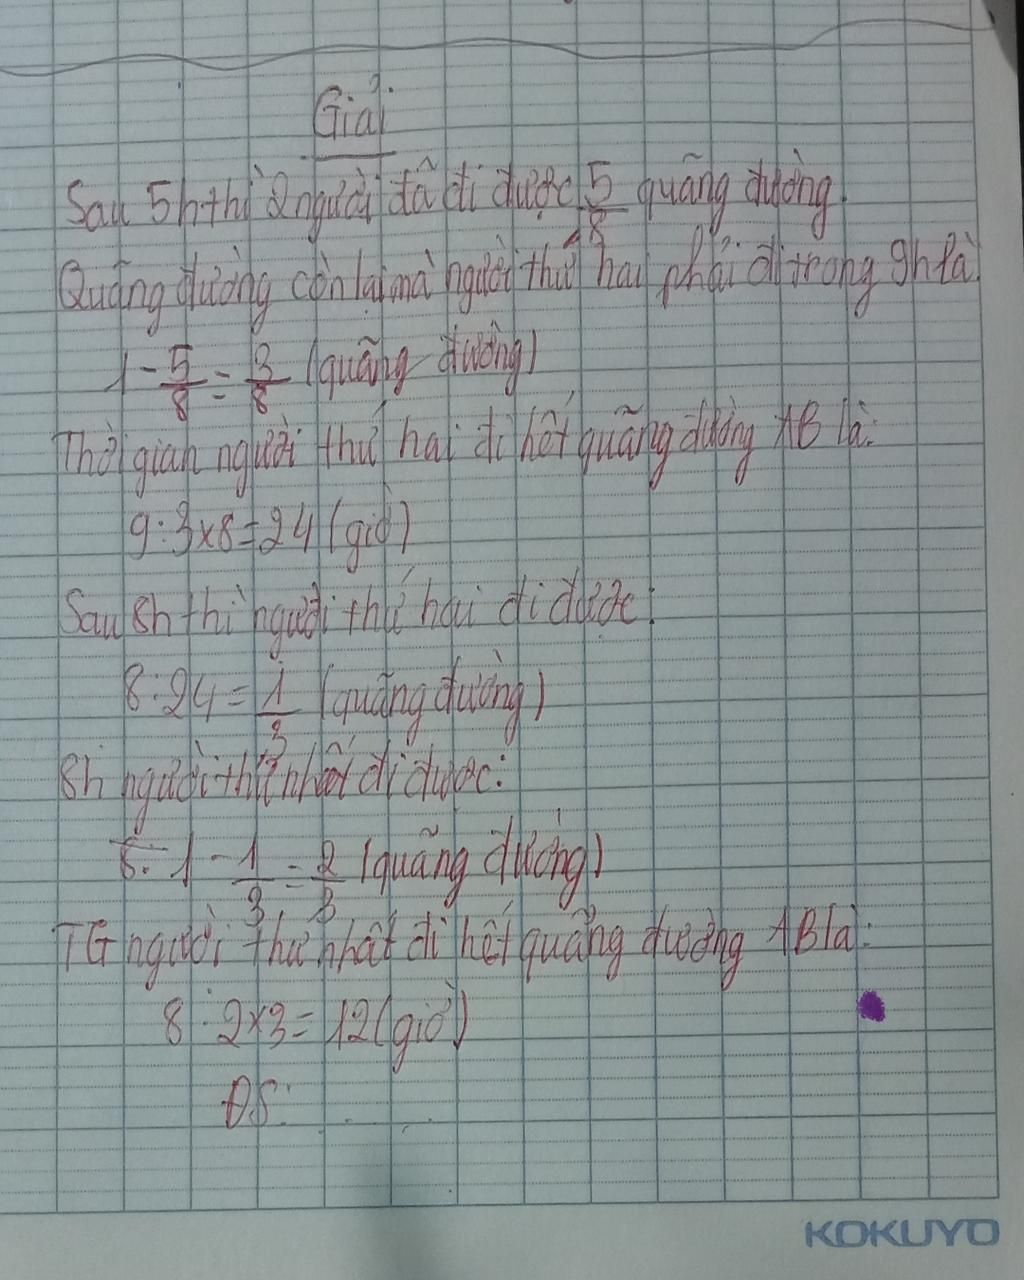 Giải
Sau 5h thì 2 người đã đi được 5/8 quãng đường
Quãng đường còn lại mà người thứ hai phải đi trong 9h là
1 - 5/8 = 3/8 (quãng đường)
Thời gian người thứ hai đi hết quãng đường AB là:
9 : 3 x 8 = 24 (giờ)
Sau 8h thì người thứ hai đi được:
8 : 24 = 1/3 (quãng đường)
8h người thứ nhất đi được:
1 - 1/3 = 2/3 (quãng đường)
TG người thứ nhất đi hết quãng đường AB là:
8 : 2 x 3 = 12 (giờ)
ĐS:
KOKUYO